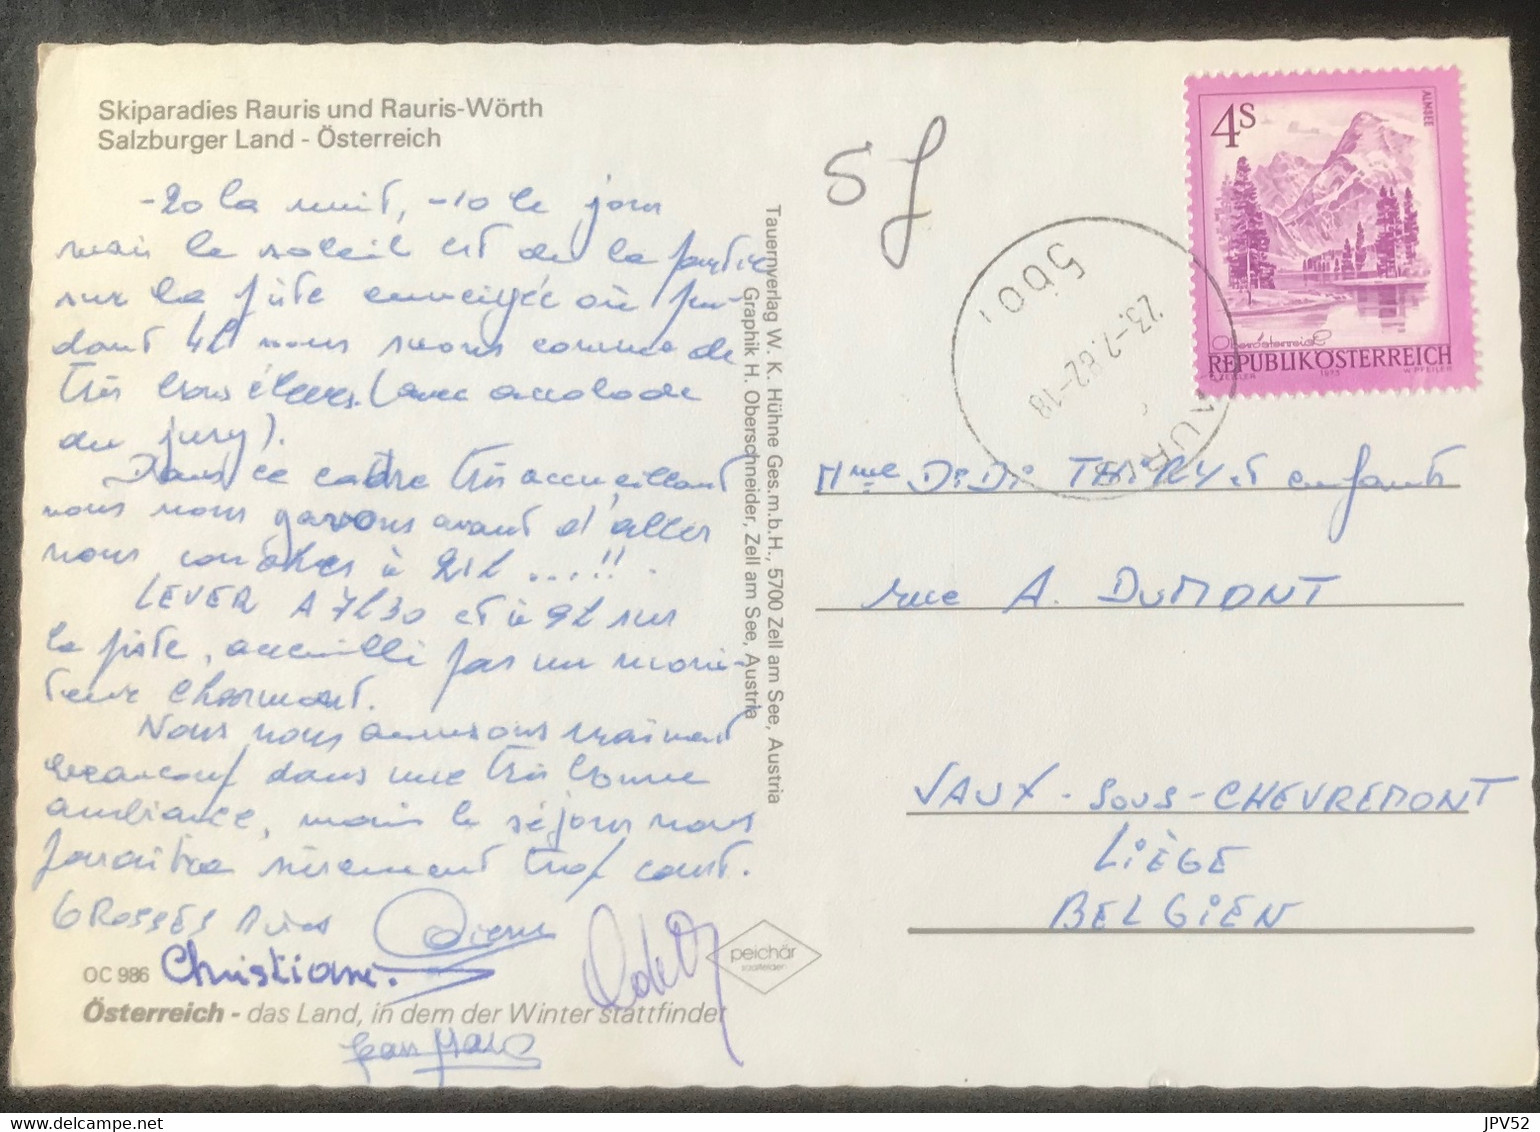 Skiparadies Rauris und Rauris-Wörth
Salzburger Land - Österreich
-20 la nuit, -10 le jour
mais le soleil est de la partie
sur la piste enneigée où pen-
dant 4h nous sommes de
très bons élèves. (avec accolade
du jury).
Dans ce cadre très accueillant
nous nous gavons avant d'aller
nous coucher à 21h ...!!
LEVER A 7h30 et à 9h sur
la piste, accueilli par un moni-
teur charmant.
Nous nous amusons vraiment
beaucoup dans une très bonne
ambiance, mais le séjour nous
paraitra sûrement trop court.
GROSSES Bises
Christiane.
OC 986
Österreich - das Land, in dem der Winter stattfindet
Jean Marc
peichär
saalfelden
Tauernverlag W. K. Hühne Ges.m.b.H., 5700 Zell am See, Austria
Graphik H. Oberschneider, Zell am See, Austria
5 f
4S
ALMSEE
Oberösterreich
REPUBLIK ÖSTERREICH
1973
W. PFEILER
23.-2.82-18
RAURIS
Mme DiDi THIRY et enfants
rue A. DUMONT
VAUX-SOUS-CHEVREMONT
LiÈGE
BELGIEN
JPV52